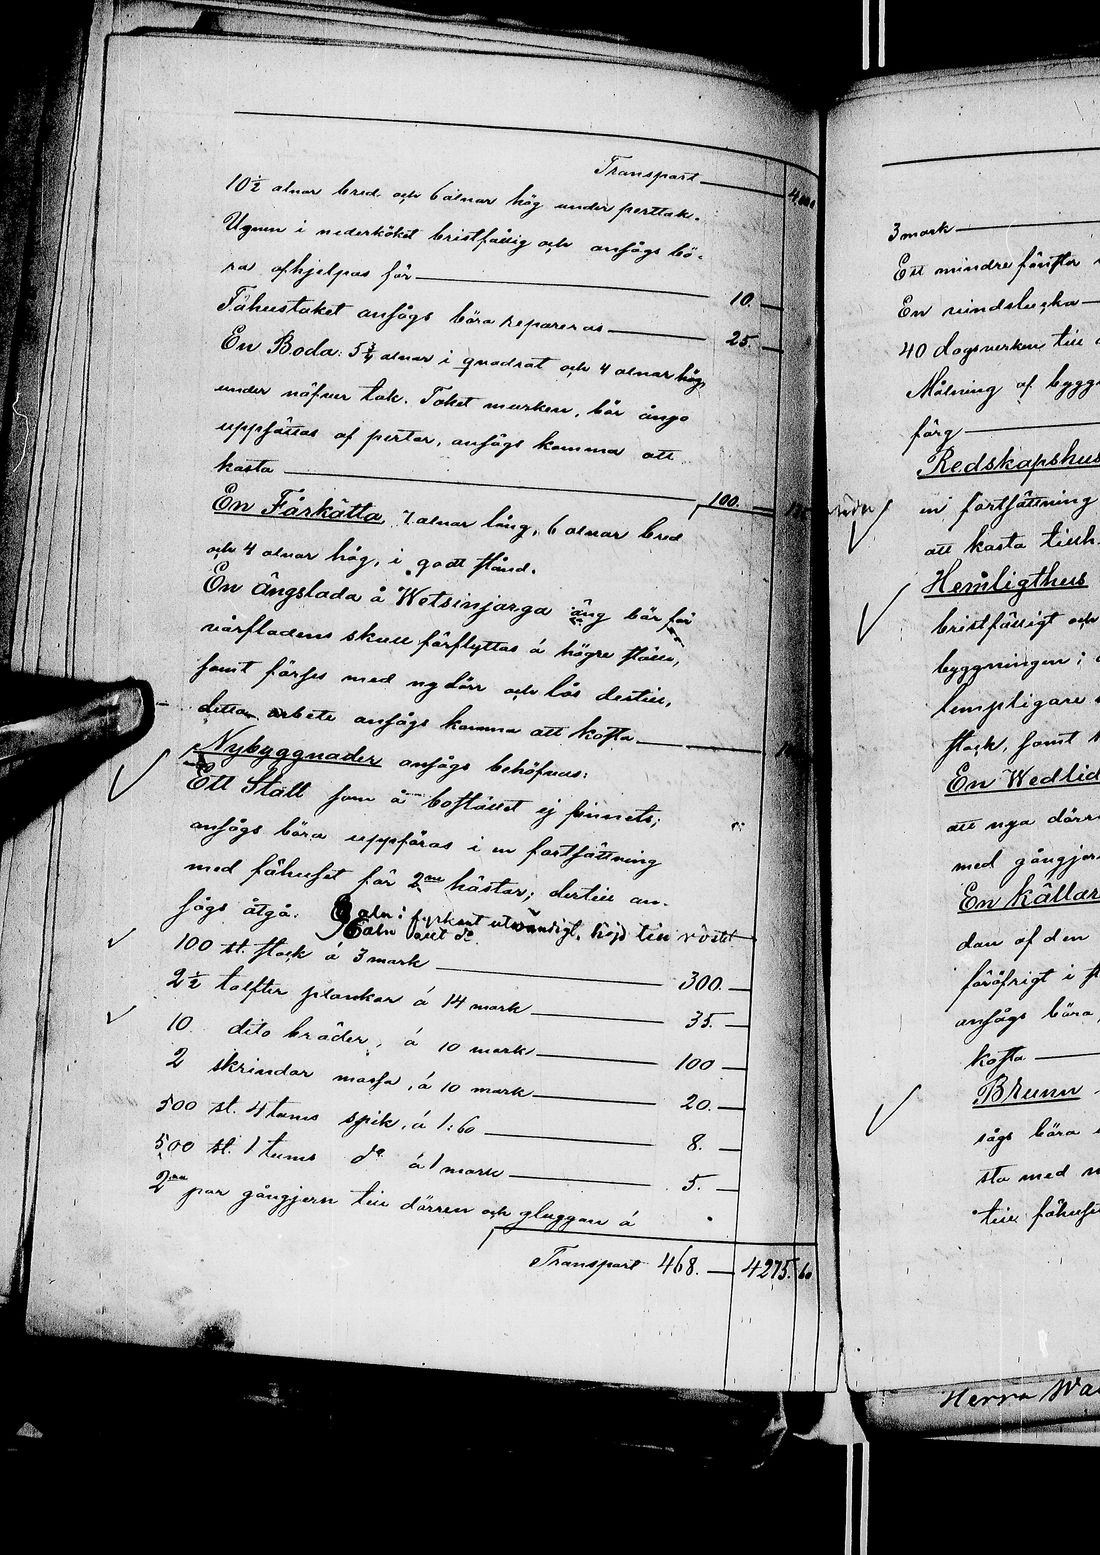 Transport
10½ alnar bred och 6 alnar hög under perttak.
Ugnen i nederköket bristfällig och ansågs bö-
ra afhjelpas för 10.
Fähustaket ansågs böra repareras 25.
En Boda: 5¾ alnar i quadrat och 4 alnar hög
under näfver tak. Taket murken, bör ånyo
uppsättas af pertor, ansågs komma att
kosta 100.
En Fårkätta, 7 alnar lång, 6 alnar bred
och 4 alnar hög, i godt stånd.
En ängslada å Wetsinjarga äng bör för
vårflodens skull förflyttas á högre ställe,
samt förses med ny dörr och lås dertill,
detta arbete ansågs komma att kosta
Nybyggnader ansågs behöfvas:
Ett Stall som å bostället ej finnets;
ansågs böra uppföras i en fortsättning
med fähuset för 2ne hästar; dertill an-
sågs åtgå: 8 aln i fyrkant utvändigt, höjd till röstet
6 aln allt do
100 st. stock á 3 mark 300.
2½ tolfter plankor á 14 mark 35.
10 dito bräder, á 10 mark 100
2 skrindor mossa, á 10 mark 20.
500 st. 4 tums spik, á 1:60 8.
500 st. 1 tums do á 1 mark 5.
2ne par gångjern till dörren och gluggan á
Transport 468. 4275. 60
3 mark
Ett mindre fönster
En vindslucka
40 dagsverken till
Målning af bygg
färg
Redskapshus
in fortsättning
att kosta tillh
Hemligthus
bristfälligt och
byggningen;
lämpligare
stock, samt
En Wedlid
att nya dörr
med gångjer
En källar
dan af den
föröfrigt i
ansågs böra
kosta
Brunn
sågs böra
sta med
till fähus
Herra Wa